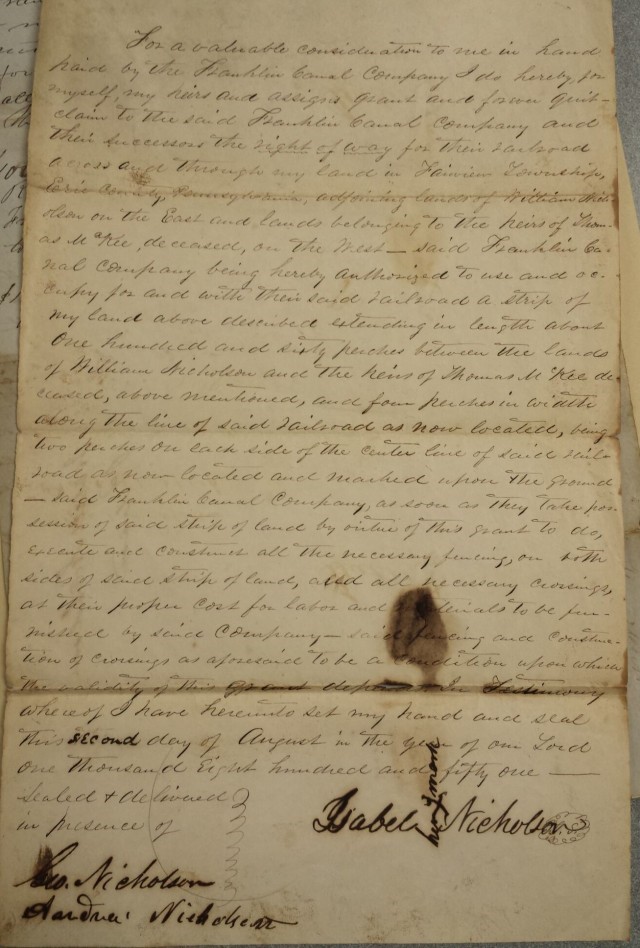 For a valuable consideration to me in hand
paid by the Franklin Canal Company I do hereby for
myself, my heirs and assigns grant and forever quit-
claim to the said Franklin Canal Company and
their successors the right of way for their railroad
across and through my land in Fairview Township,
Erie County, Pennsylvania, adjoining lands of William Nich-
olson on the East and lands belonging to the heirs of Thom-
as McKee, deceased, on the West — said Franklin Ca-
nal Company being hereby authorized to use and oc-
cupy for and with their said railroad a strip of
my land above described extending in length about
One hundred and sixty perches between the lands
of William Nicholson and the heirs of Thomas McKee de-
ceased, above mentioned, and four perches in width
along the line of said railroad as now located, being
two perches on each side of the center line of said rail-
road as now located and marked upon the ground
— said Franklin Canal Company, as soon as they take pos-
session of said strip of land by virtue of this grant to do,
execute and construct all the necessary fencing, on both
sides of said strip of land, and all necessary crossings,
at their proper cost for labor and materials to be fur-
nished by said Company — said fencing and construc-
tion of crossings as aforesaid to be a condition upon which
the validity of this grant depends. In Testimony
whereof I have hereunto set my hand and seal
this second day of August in the year of our Lord
one thousand Eight hundred and fifty one —
Sealed & delivered
in presence of
Isabel Nicholson
her mark
Geo. Nicholson
Nicholson